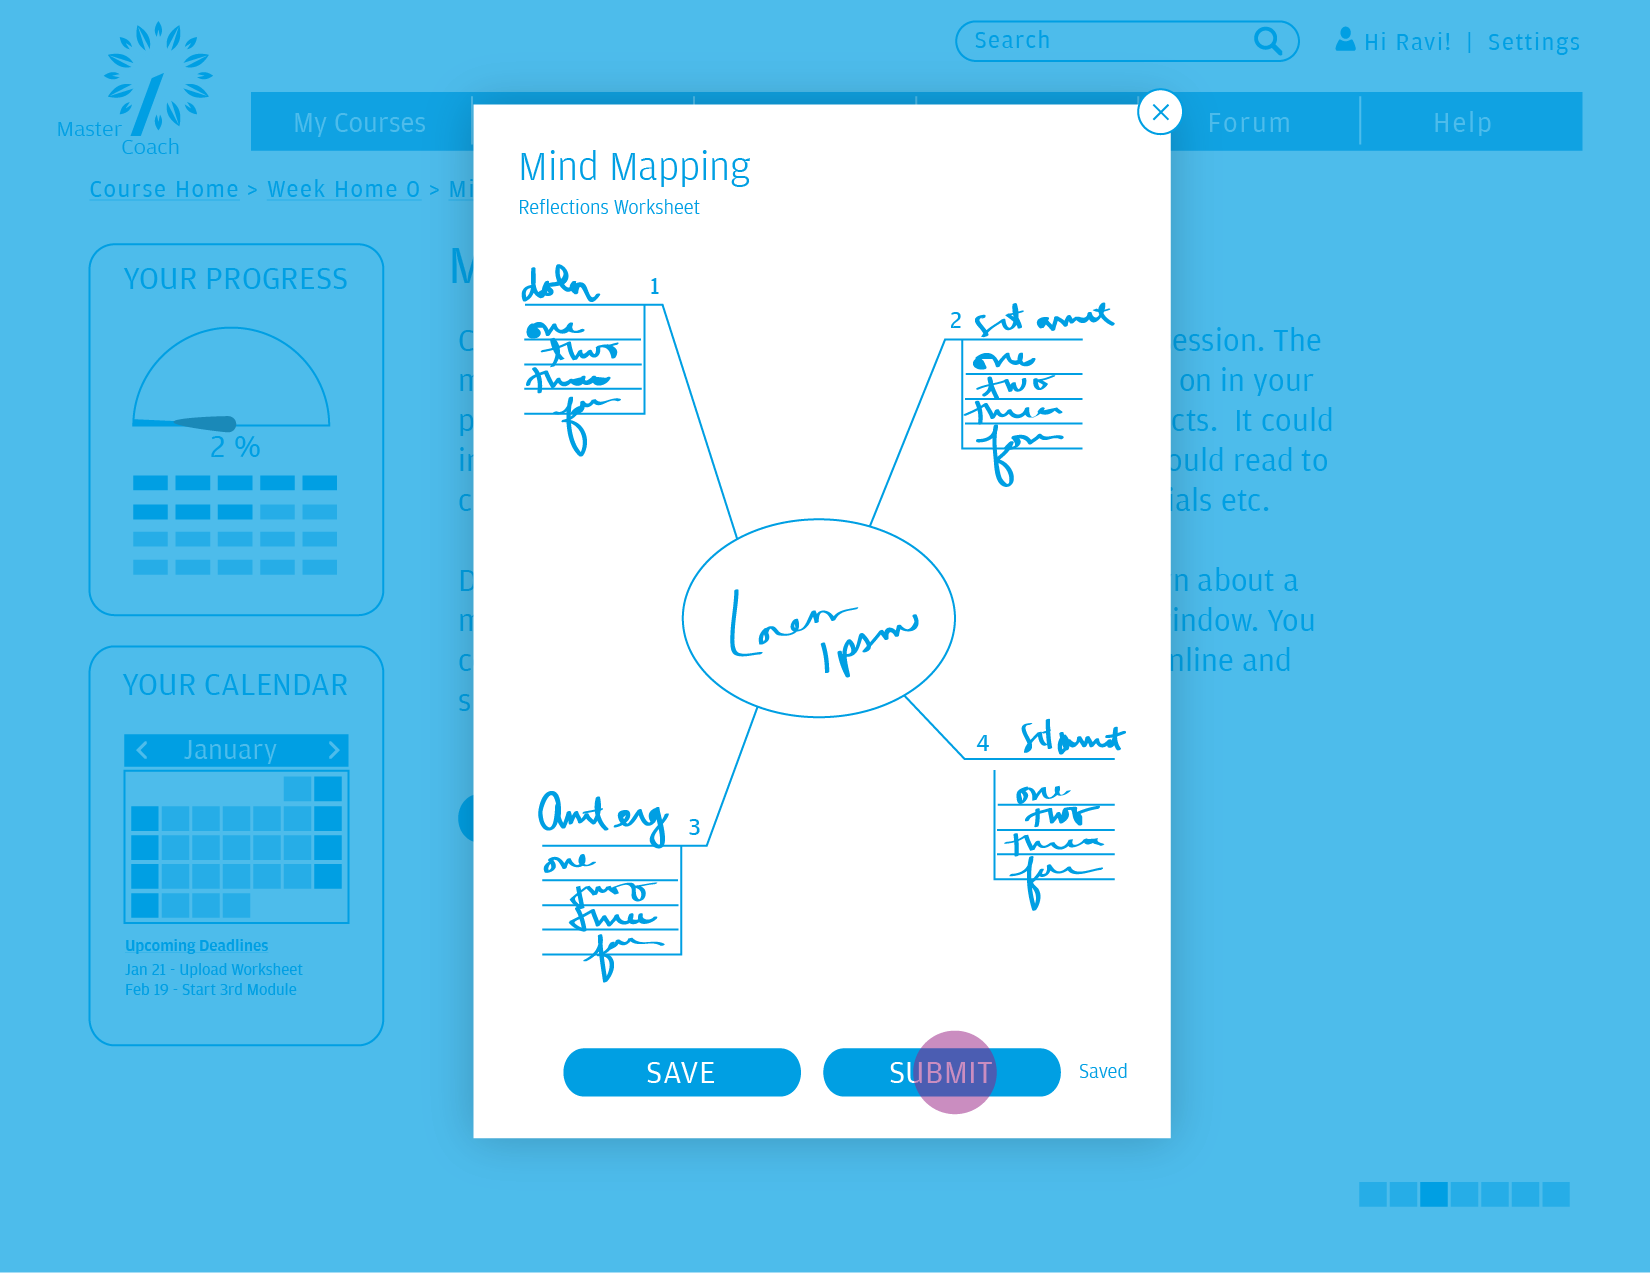 Master
Coach
Search
Hi Ravi! | Settings
My Courses
Forum
Help
Course Home > Week Home 0 > Mi
YOUR PROGRESS
2 %
YOUR CALENDAR
January
Upcoming Deadlines
Jan 21 - Upload Worksheet
Feb 19 - Start 3rd Module
M
ession. The
on in your
cts. It could
ould read to
ials etc.
n about a
indow. You
nline and
Mind Mapping
Reflections Worksheet
1
one
two
three
2 sit amet
one
two
three
Lorem
Ipsum
3
one
two
three
4 sit amet
one
two
three
SAVE
SUBMIT
Saved